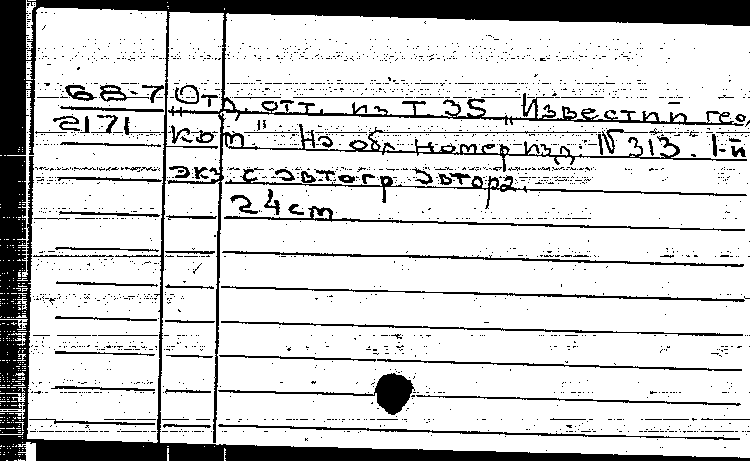 68-7 Отд. отт. из Т. 35 „Известий гео.
2171 Ком." На обл номер изд: № 313. 1-й
экз с автогр автора.
24 cm